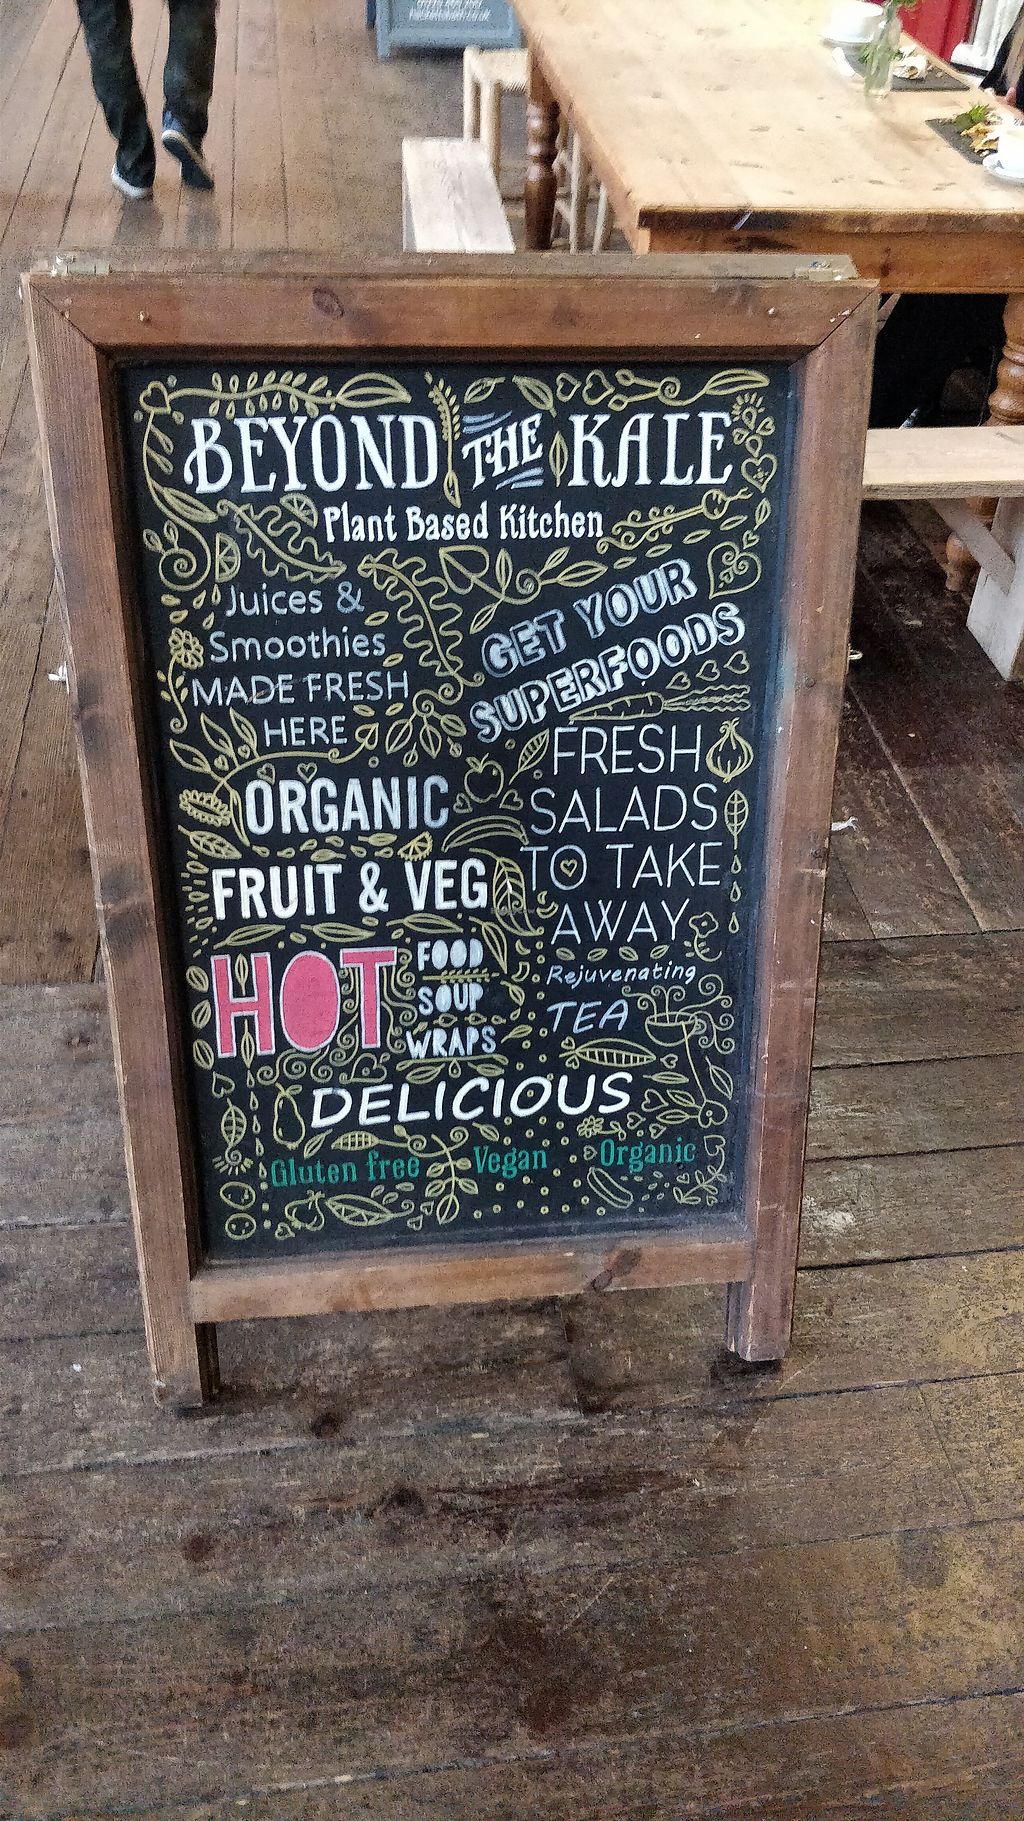 BEYOND THE KALE
Plant Based Kitchen
Juices &
Smoothies
MADE FRESH
HERE
GET YOUR
SUPERFOODS
FRESH
SALADS
TO TAKE
AWAY
ORGANIC
FRUIT & VEG
HOT
FOOD
SOUP
WRAPS
Rejuvenating
TEA
DELICIOUS
Gluten free Vegan Organic